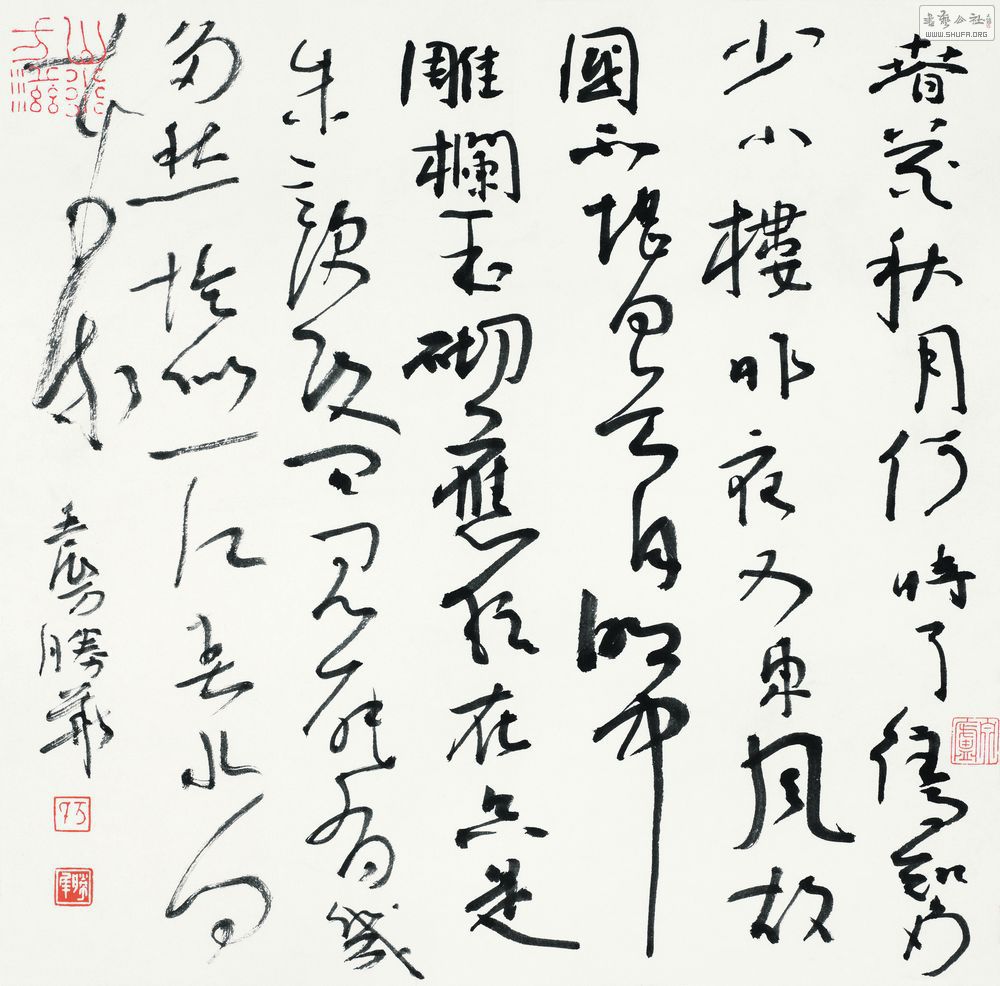 春花秋月何時了往事知多
少小樓昨夜又東風故
國不堪回首月明中
雕欄玉砌應猶在只是
朱顏改問君能有幾
多愁恰似一江春水向
東流
勝華
書藝公社
WWW.SHUFA.ORG